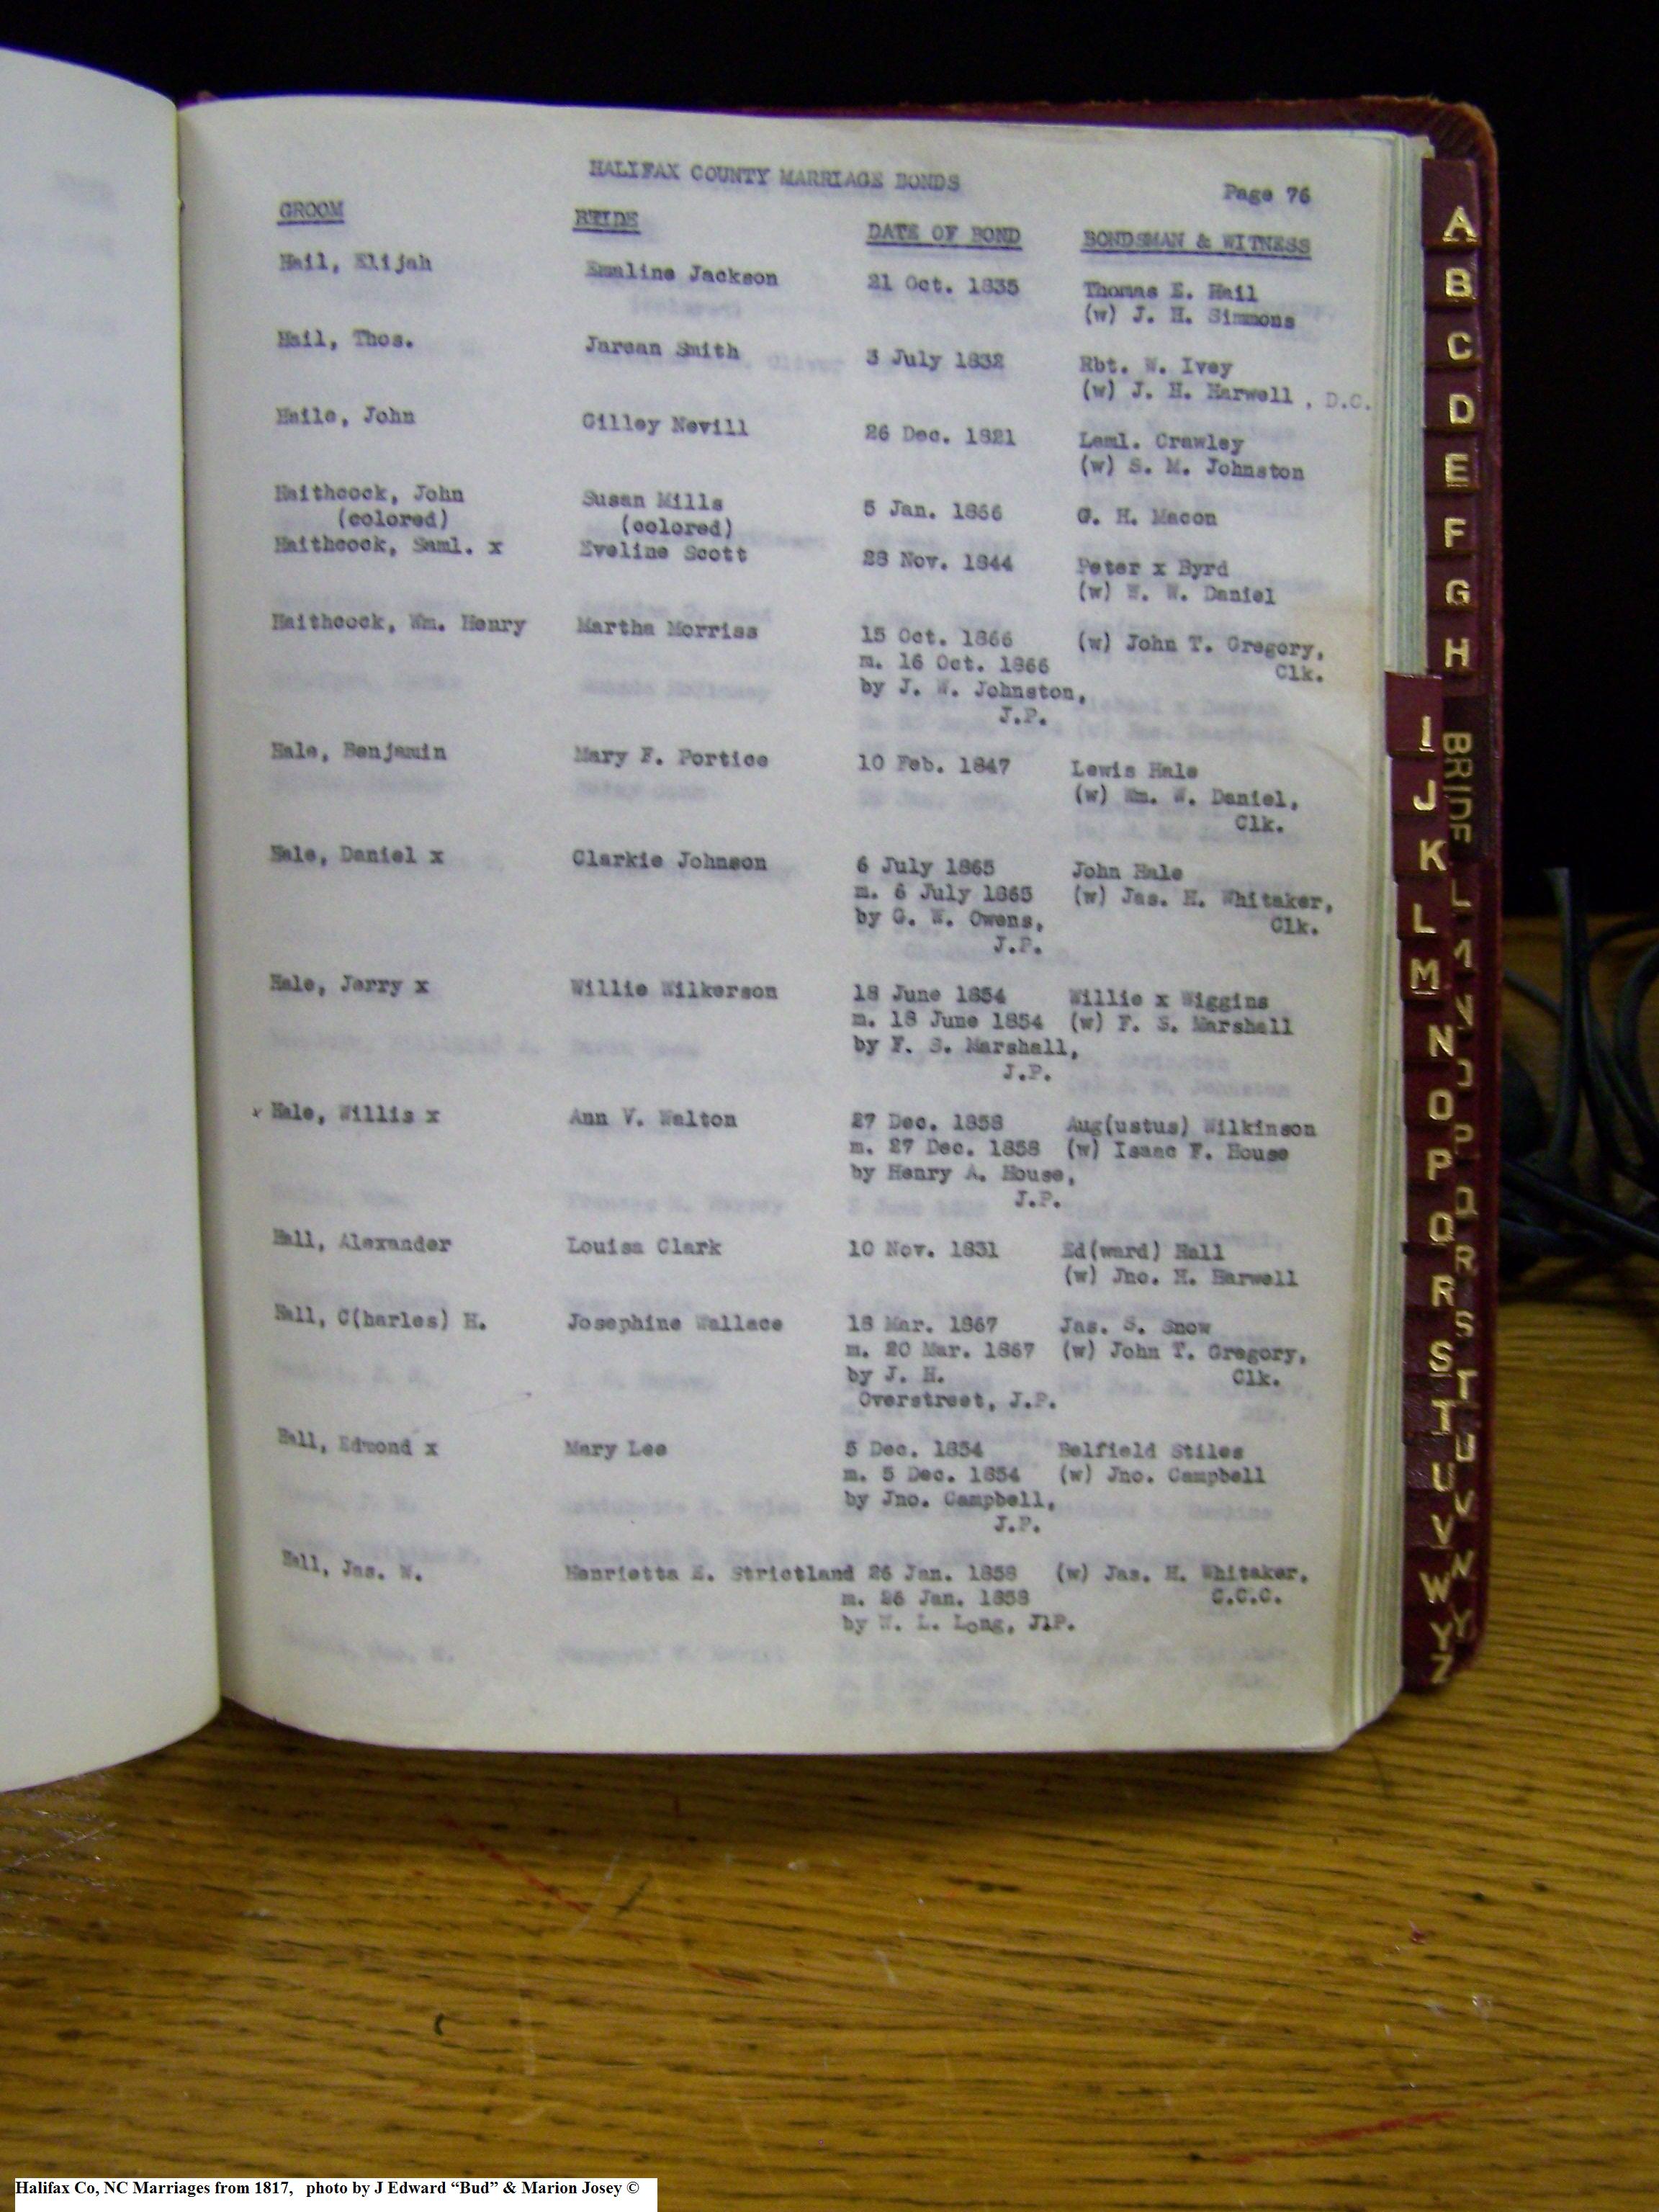 HALIFAX COUNTY MARRIAGE BONDS
Page 76
GROOM BRIDE DATE OF BOND BONDSMAN & WITNESS
Hail, Elijah Emaline Jackson 21 Oct. 1835 Thomas E. Hail
(w) J. H. Simmons
Hail, Thos. Jarean Smith 3 July 1832 Rbt. W. Ivey
(w) J. H. Harwell , D.C.
Haile, John Gilley Nevill 26 Dec. 1821 Leml. Crawley
(w) S. M. Johnston
Haithcock, John Susan Mills 5 Jan. 1866 G. H. Macon
(colored) (colored)
Haithcock, Saml. x Eveline Scott 28 Nov. 1844 Peter x Byrd
(w) W. W. Daniel
Haithcock, Wm. Henry Martha Morriss 15 Oct. 1866 (w) John T. Gregory,
m. 16 Oct. 1866 Clk.
by J. W. Johnston,
J.P.
Hale, Benjamin Mary F. Portice 10 Feb. 1847 Lewis Hale
(w) Wm. W. Daniel,
Clk.
Hale, Daniel x Clarkie Johnson 6 July 1865 John Hale
m. 6 July 1865 (w) Jas. H. Whitaker,
by G. W. Owens, Clk.
J.P.
Hale, Jerry x Willie Wilkerson 18 June 1854 Willie x Wiggins
m. 18 June 1854 (w) F. S. Marshall
by F. S. Marshall,
J.P.
x Hale, Willis x Ann V. Walton 27 Dec. 1858 Aug(ustus) Wilkinson
m. 27 Dec. 1858 (w) Isaac F. House
by Henry A. House,
J.P.
Hall, Alexander Louisa Clark 10 Nov. 1831 Ed(ward) Hall
(w) Jno. H. Harwell
Hall, C(harles) H. Josephine Wallace 18 Mar. 1867 Jas. S. Snow
m. 20 Mar. 1867 (w) John T. Gregory,
by J. H. Clk.
Overstreet, J.P.
Hall, Edmond x Mary Lee 5 Dec. 1854 Belfield Stiles
m. 5 Dec. 1854 (w) Jno. Campbell
by Jno. Campbell,
J.P.
Hall, Jas. W. Henrietta E. Strictland 26 Jan. 1858 (w) Jas. H. Whitaker,
m. 26 Jan. 1858 C.C.C.
by W. L. Long, J.P.
A
B
C
D
E
F
G
H
I
J
K
L
M
N
O
P
Q
R
S
T
U
V
W
Y
Z
BRIDE
L
N
P
Q
R
S
T
U
V
W
Y
Halifax Co, NC Marriages from 1817, photo by J Edward “Bud” & Marion Josey ©